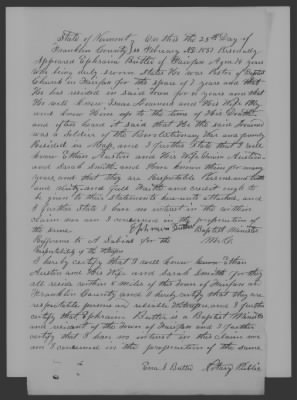 State of Vermont On this the 25th Day of
Franklin County ss February AD 1851 Personally
Appeared Ephraim Butler of Fairfax Aged
who being duly sworn states He was Pastor of Baptist
Church in Fairfax for the space of 7 years and that
He has resided in said town for years and that
He well knew Isaac and His Wife
and knew Him up to the time of His Death
and often heard it said that He the said
was a Soldier of the Revolutionary War and formerly
Resided in Mass. and I further State that I well
know Ethan Austin and His Wife Austin
and Sarah Smith and Have known them for many
years and that they are Respectable Persons and
and that full Faith and credit ought to
be given to their statements hereunto attached, and
I further state I have no interest in the within
claim nor am I concerned in the prosecution of
the same Ephraim Butler Baptist Minister
Reference to A. for the
Respectability of the Witness
I hereby certify that I well know Ethan
Austin and His Wife and Sarah Smith for they
all reside within 6 miles of the Town of Fairfax in
Franklin County and I hereby certify that they are
respectable persons and Witnesses, and I further
certify that Ephraim Butler is a Baptist Minister
and resident of the Town of Fairfax and I further
certify that I have no interest in this claim nor
am I concerned in the prosecution of the same
Butler Notary Public